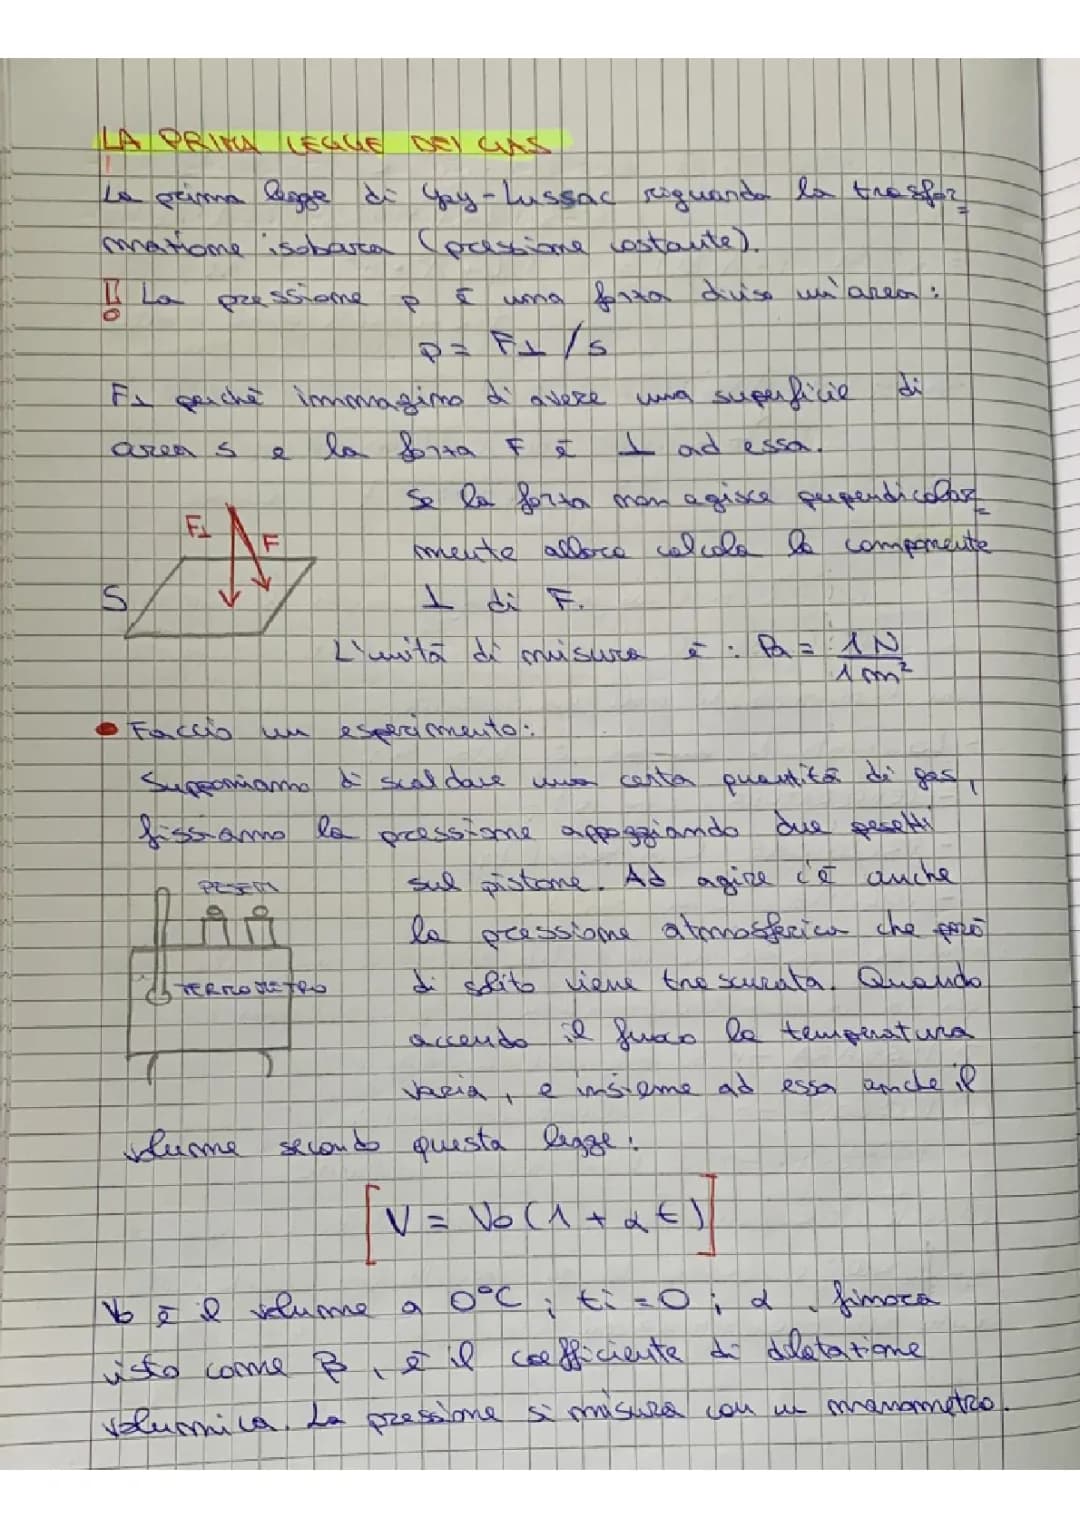 LA PRIMA LEGGE DEI GAS
La prima legge di Gay-Lussac riguarda la trasfor=
mazione isobara (pressione costante).
! La pressione p è una forza diviso un'area:
p = F⊥ / S
F⊥ perchè immagino di avere una superficie di
area S e la forza F è ⊥ ad essa.
Se la forza non agisce perpendicolar=
mente allora calcola la componente
⊥ di F.
F⊥
F
S
L'unità di misura è: Pa = 1N / 1m²
• Faccio un esperimento:
Supponiamo di scaldare una certa quantità di gas,
fissiamo la pressione appoggiando due pesetti
sul pistone. Ad agire c'è anche
la pressione atmosferica che però
di solito viene trascurata. Quando
accendo il fuoco la temperatura
varia, e insieme ad essa anche il
PESETTI
TERMOMETRO
volume secondo questa legge:
[V = Vo (1 + αt)]
Vo è il volume a 0°C; ti = 0; α, finora
visto come β, è il coefficiente di dilatazione
volumica. La pressione si misura con un manometro.